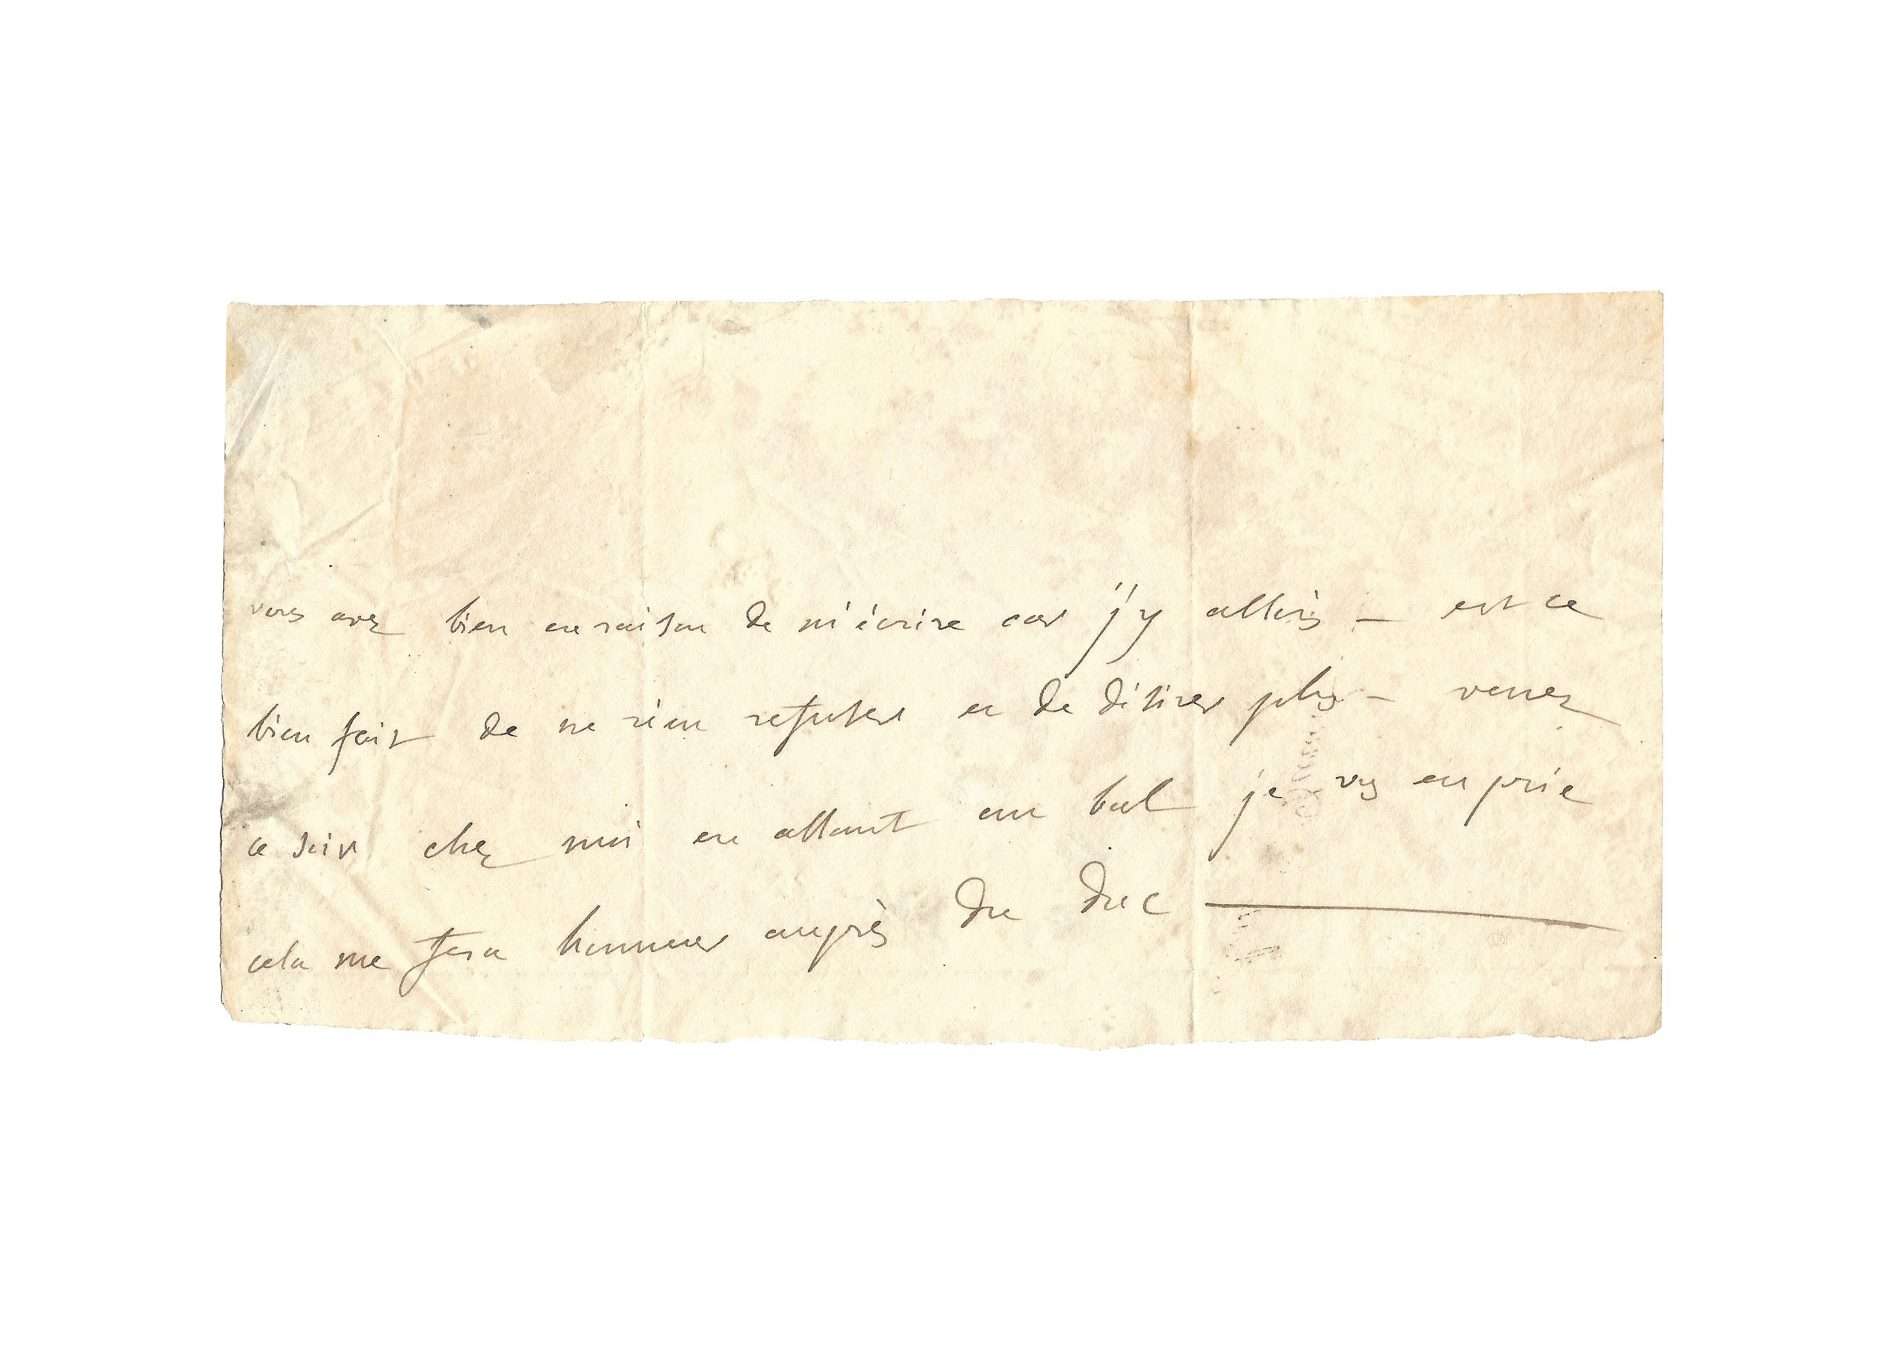 vous avez bien eu raison de m'écrire car j'y allais — est ce
bien fait de ne rien refuser et de désirer plus — venez
ce soir chez moi en allant au bal je vs en prie
cela me fera honneur auprès du duc